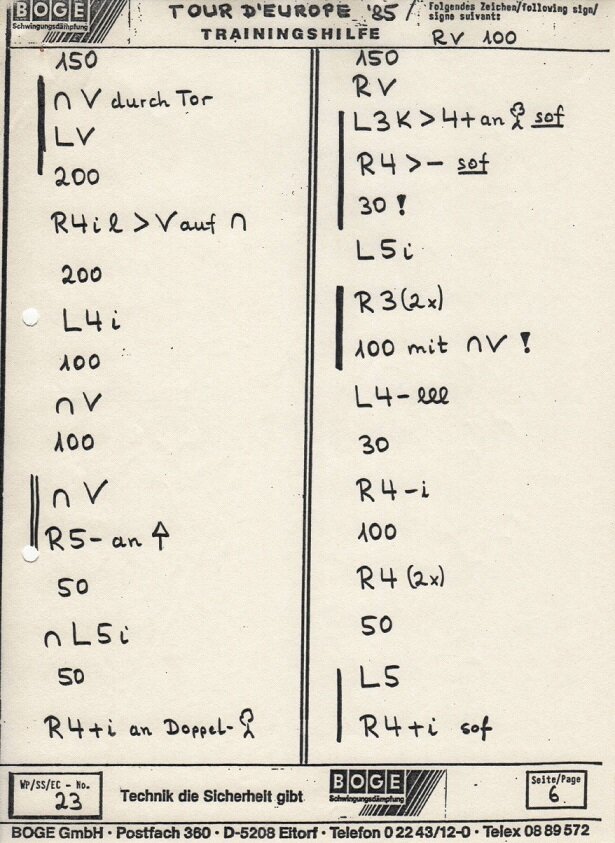 BOGE
Schwingungsdämpfung
TOUR D'EUROPE '85
TRAININGSHILFE
Folgendes Zeichen/following sign/
signe suivant:
RV 100
150
∩ V durch Tor
LV
200
R4il > V auf ∩
200
L4i
100
∩ V
100
∩ V
R5- an ↑
50
∩ L5i
50
R4+i an Doppel-
150
RV
L3K>4+an sof
R4>- sof
30 !
L5i
R3(2x)
100 mit ∩V !
L4-lll
30
R4-i
100
R4(2x)
50
L5
R4+i sof
WP/SS/EC - No.
23
Technik die Sicherheit gibt
BOGE
Schwingungsdämpfung
Seite/Page
6
BOGE GmbH · Postfach 360 · D-5208 Eitorf · Telefon 0 22 43/12-0 · Telex 08 89 572